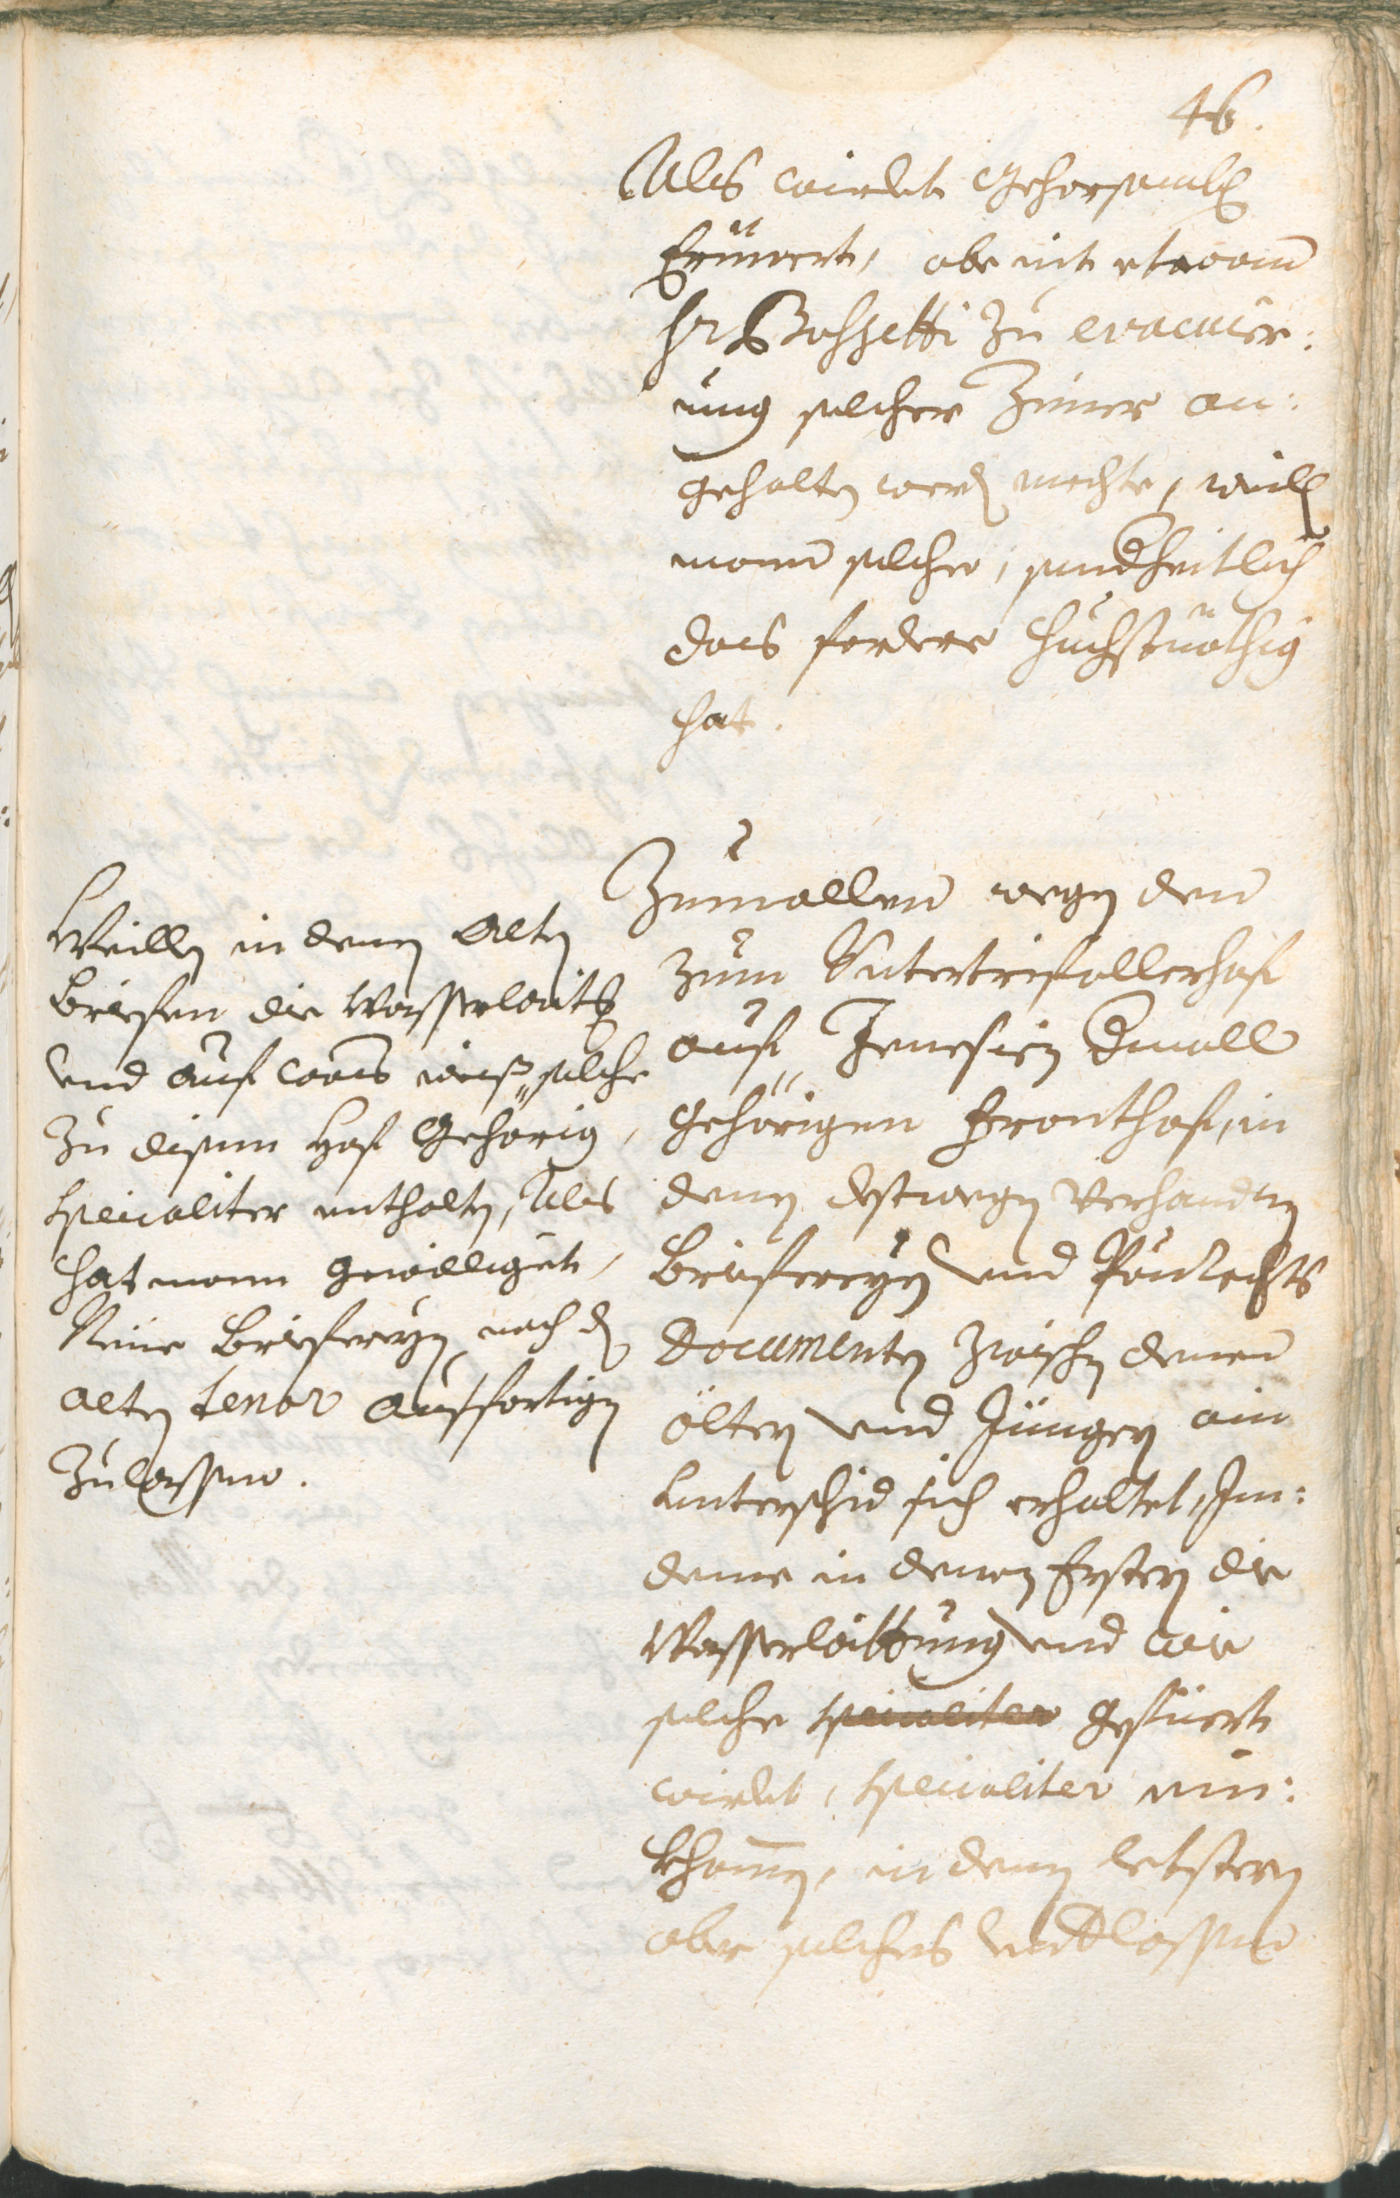 46.
Als wirdet gehorsambl.
Erinnert, ob nit etwann
Hr. Bossetti zu evacuier:
ung solcher Zimer an:
gehalten werd. mechte, weill
mann solcher, sonderheitlich
das fordere höchstnöthig
hat.
Zumallen wegen den
zum Untertrifallerhof
auf Jenesien Emall
gehörigen Fronthof, in
denen destwegen verhandten
briefereyen und Paurechts
Documenten zwischen denen
ölten und Jüngern ain
Unterschid sich erhaltet, In:
deme in denen Ersten die
Wasserlaittung und wie
solche specialiter gefüert
wirdet, specialiter ein:
khomen, in denen letstern
aber solches undlassen
Weillen in denen alten
briefen die Wasserlaitt.
und auf was weiß, solche
zu disem Hof gehörig,
specialiter enthalten, Als
hat mann gewilliget,
Neüe briefereyen nach d.
alten tenor ausfertigen
zulassen.